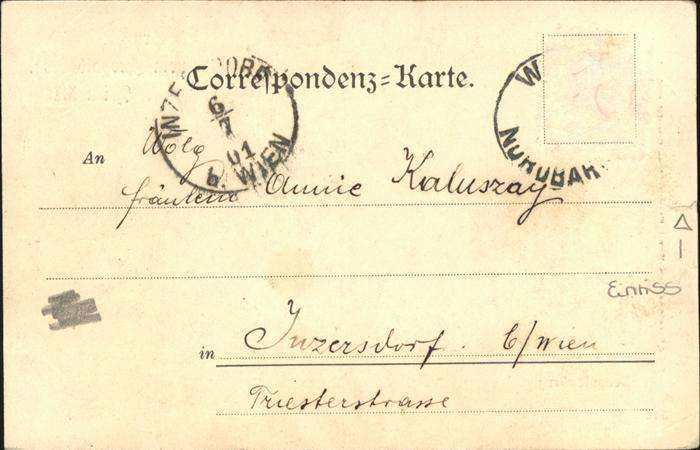 Correspondenz=Karte.
INZERSDORF
6/7
01
b. WIEN
W
NORDBAH
An Wolg
Fräulein Annie Kaluszay
Emiss
in Inzersdorf. b/Wien
Triesterstrasse